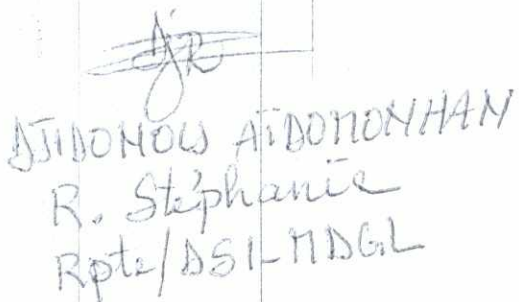 DJIDOMOU AÏDOMONHAN
R. Stéphanie
Rpte/DSI-MDGL